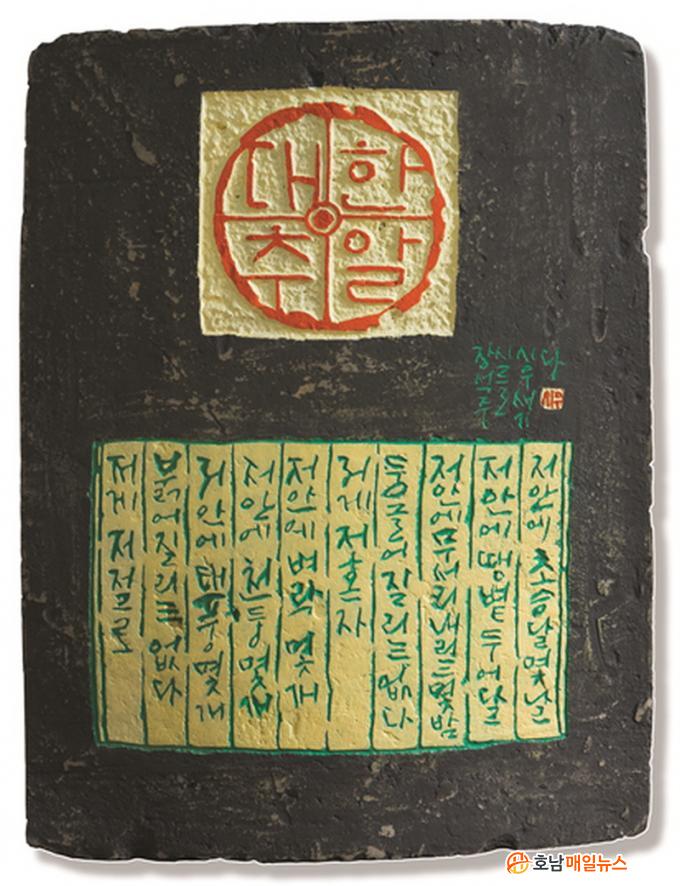 대추
한알
장석주
시를
시우새기
다
저게 저절로
붉어질리는 없다
저안에 태풍 몇개
저안에 천둥 몇개
저안에 벼락 몇개
저게 저혼자
둥글어질리는 없다
저안에 무서리 내리는 몇밤
저안에 땡볕 두어달
저안에 초승달 몇날
호남매일뉴스